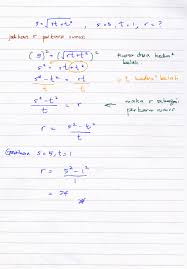 s = √rt+t² , s=5, t=1, r=?
jadikan r perkara rumus
(s)² = (√rt+t²)² kuasa dua kedua² belah
s² = rt+t²
s²-t²/t = rt/t ÷t kedua² belah
s²-t²/t = r ← maka r sebagai perkara rumus
r = s²-t²/t
Gantikan s=5, t=1
r = 5²-1²/1
= 24